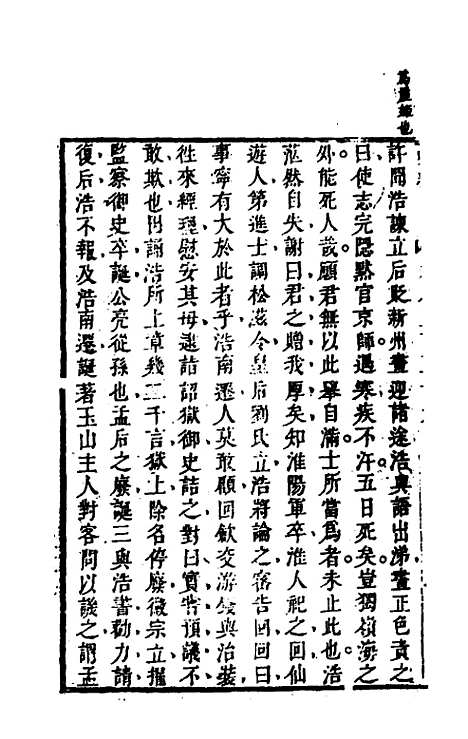 許聞浩諫立后貶新州畫迎諸途浩與語出涕畫正色責之
曰使志完隱默官京師遇寒疾不汗五日死矣豈獨嶺海之
外能死人哉願君無以此舉自滿士所當為者未止此也浩
茫然自失謝曰君之贈我厚矣知淮陽軍卒淮人祀之回仙
遊人第進士調松滋令皇后劉氏立浩將論之密告回回曰
事寧有大於此者乎浩南遷人莫敢顧回斂交游錢與治裝
徃來經理慰安其母逮詣詔獄御史詰之對曰實嘗預議不
敢欺也因誦浩所上章幾二千言獄上除名停廢徽宗立擢
監察御史卒誕公亮從孫也孟后之廢誕三與浩書勸力請
復后浩不報及浩南遷誕著玉山主人對客問以譏之謂孟